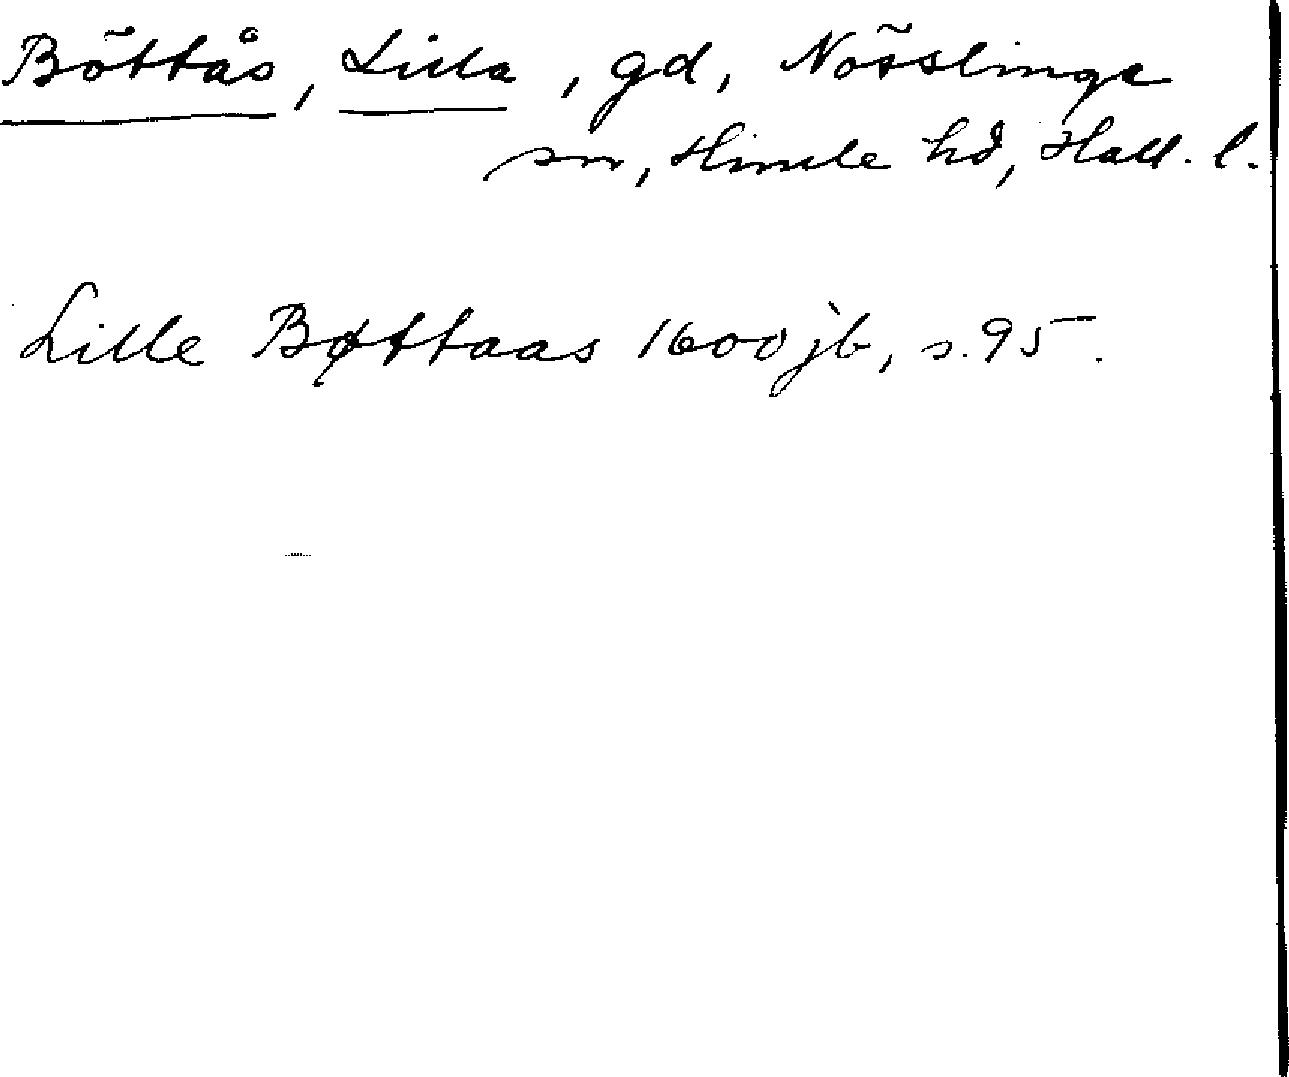 Böttås, Lilla, gd, Nösslinge
sn, Himle hd, Hall. l.
Lille Bøttaas 1600 jb, s. 95.